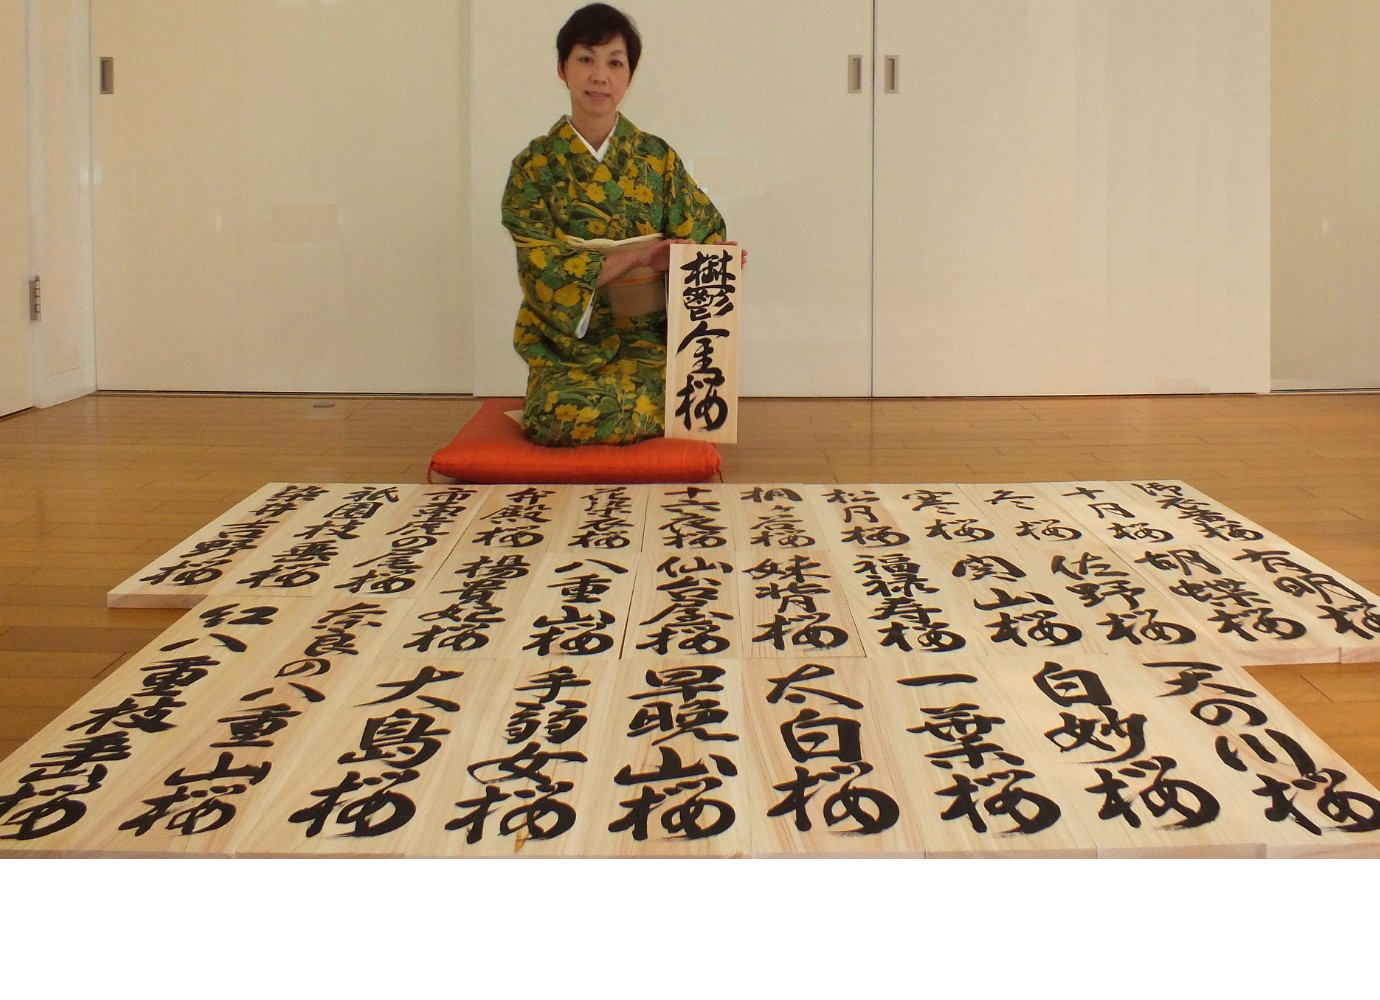 鬱金桜
染井吉野桜
祇園枝垂桜
市原虎の尾桜
弁殿桜
花染衣桜
十六夜桜
桐ヶ谷桜
松月桜
寒桜
冬桜
十月桜
御衣黄桜
楊貴妃桜
八重山桜
仙台屋桜
妹背桜
福禄寿桜
関山桜
佐野桜
胡蝶桜
有明桜
紅八重枝垂桜
奈良の八重山桜
大島桜
手弱女桜
早晩山桜
太白桜
一葉桜
白妙桜
天の川桜